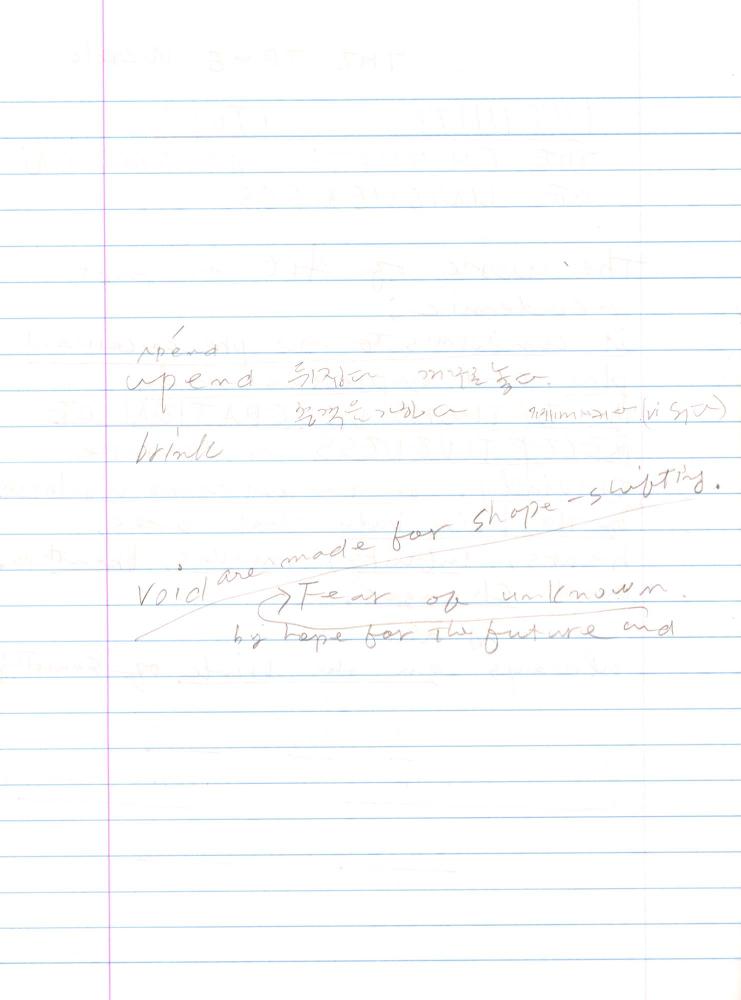 upend
upend 뒤집다 거꾸로 놓다.
충격을 가하다
brink
Void are made for shape-shifting.
Fear of unknown.
by hope for the future and